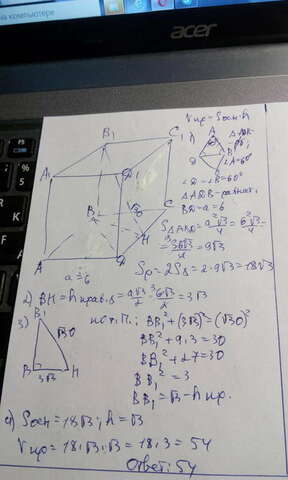 на компьютере
acer
Vпр = Sосн·h
B₁
C₁
A₁
D₁
B
C
H
A
a = 6
D
1)
A
B
D
∠A=60°
BD = a = 6
S△ABD = a²√3/4 = 6²√3/4 =
= 36√3/4 = 9√3
Sр = 2S△ = 2·9√3 = 18√3
2) BH = h прав.△ = a√3/2 = 6√3/2 = 3√3
3)
B₁
√30
B
3√3
H
по т.П.: BB₁² + (3√3)² = (√30)²
BB₁² + 9·3 = 30
BB₁² + 27 = 30
BB₁² = 3
BB₁ = √3 - h пр.
4) Sосн = 18√3; h = √3
Vпр = 18·√3·√3 = 18·3 = 54
Ответ: 54